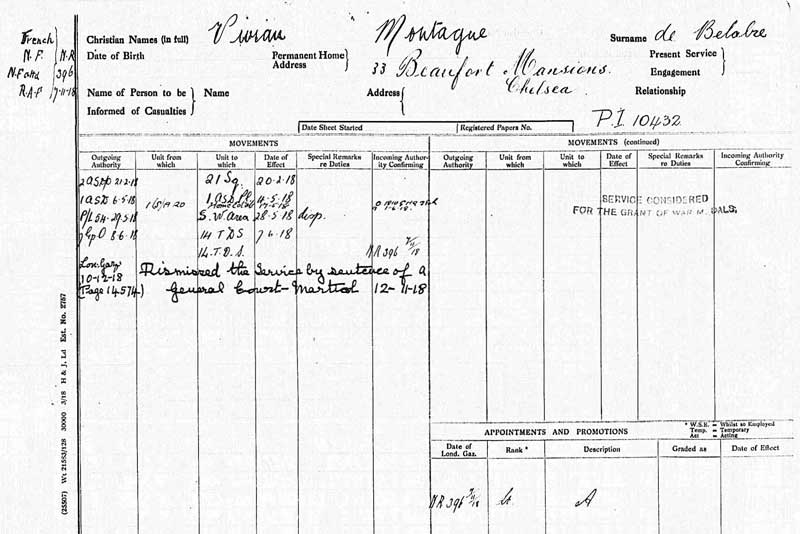 French
N.F. N.R
N.F. and 396
R.A.F 7-11-18
Christian Names (in full) Vivian Montague Surname de Belabre
Date of Birth Permanent Home Address 33 Beaufort Mansions. Chelsea. Present Service
Engagement
Name of Person to be Informed of Casualties Name Address Relationship
P.I. 10432
Date Sheet Started Registered Papers No.
MOVEMENTS MOVEMENTS (continued)
Outgoing Authority Unit from which Unit to which Date of Effect Special Remarks re Duties Incoming Authority Confirming Outgoing Authority Unit from which Unit to which Date of Effect Special Remarks re Duties Incoming Authority Confirming
2 ASDp 21.2.18 21 Sq. 20.2.18
1 ASD 6.5.18
P/L 54.29.5.18 S.W. Area 28.5.18 disp.
8.6.18 14 T D S 7.6.18
14. T.D.S. NR 396 7/11/18
SERVICE CONSIDERED
FOR THE GRANT OF WAR MEDALS.
Lon: Gaz: 10-12-18 (Page 14574) Dismissed the Service by sentence of a
General Court-Martial 12-11-18
* W.S.E. = Whilst so Employed
Temp. = Temporary
Act = Acting
APPOINTMENTS AND PROMOTIONS
Date of Lond. Gaz. Rank * Description Graded as Date of Effect
NR 396 7/11/18 Lt. A
(25507) Wt 21553/128 30000 3/18 H & J. Ld Est. No. 2787